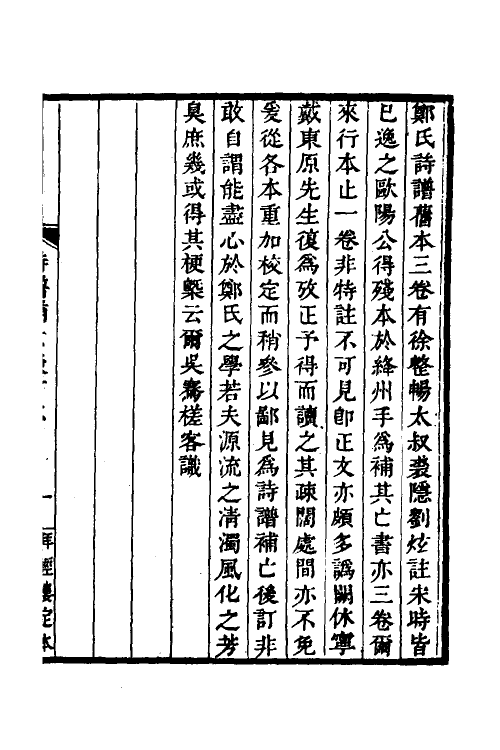 鄭氏詩譜舊本三卷有徐整暢太叔裘隱劉炫註宋時皆
已逸之歐陽公得殘本於絳州手為補其亡書亦三卷爾
來行本止一卷非特註不可見卽正文亦頗多譌闕休寧
戴東原先生復為攷正予得而讀之其疎闊處間亦不免
爰從各本重加校定而稍參以鄙見為詩譜補亡後訂非
敢自謂能盡心於鄭氏之學若夫源流之清濁風化之芳
臭庶幾或得其梗槩云爾吳騫槎客識
一
拜經樓定本